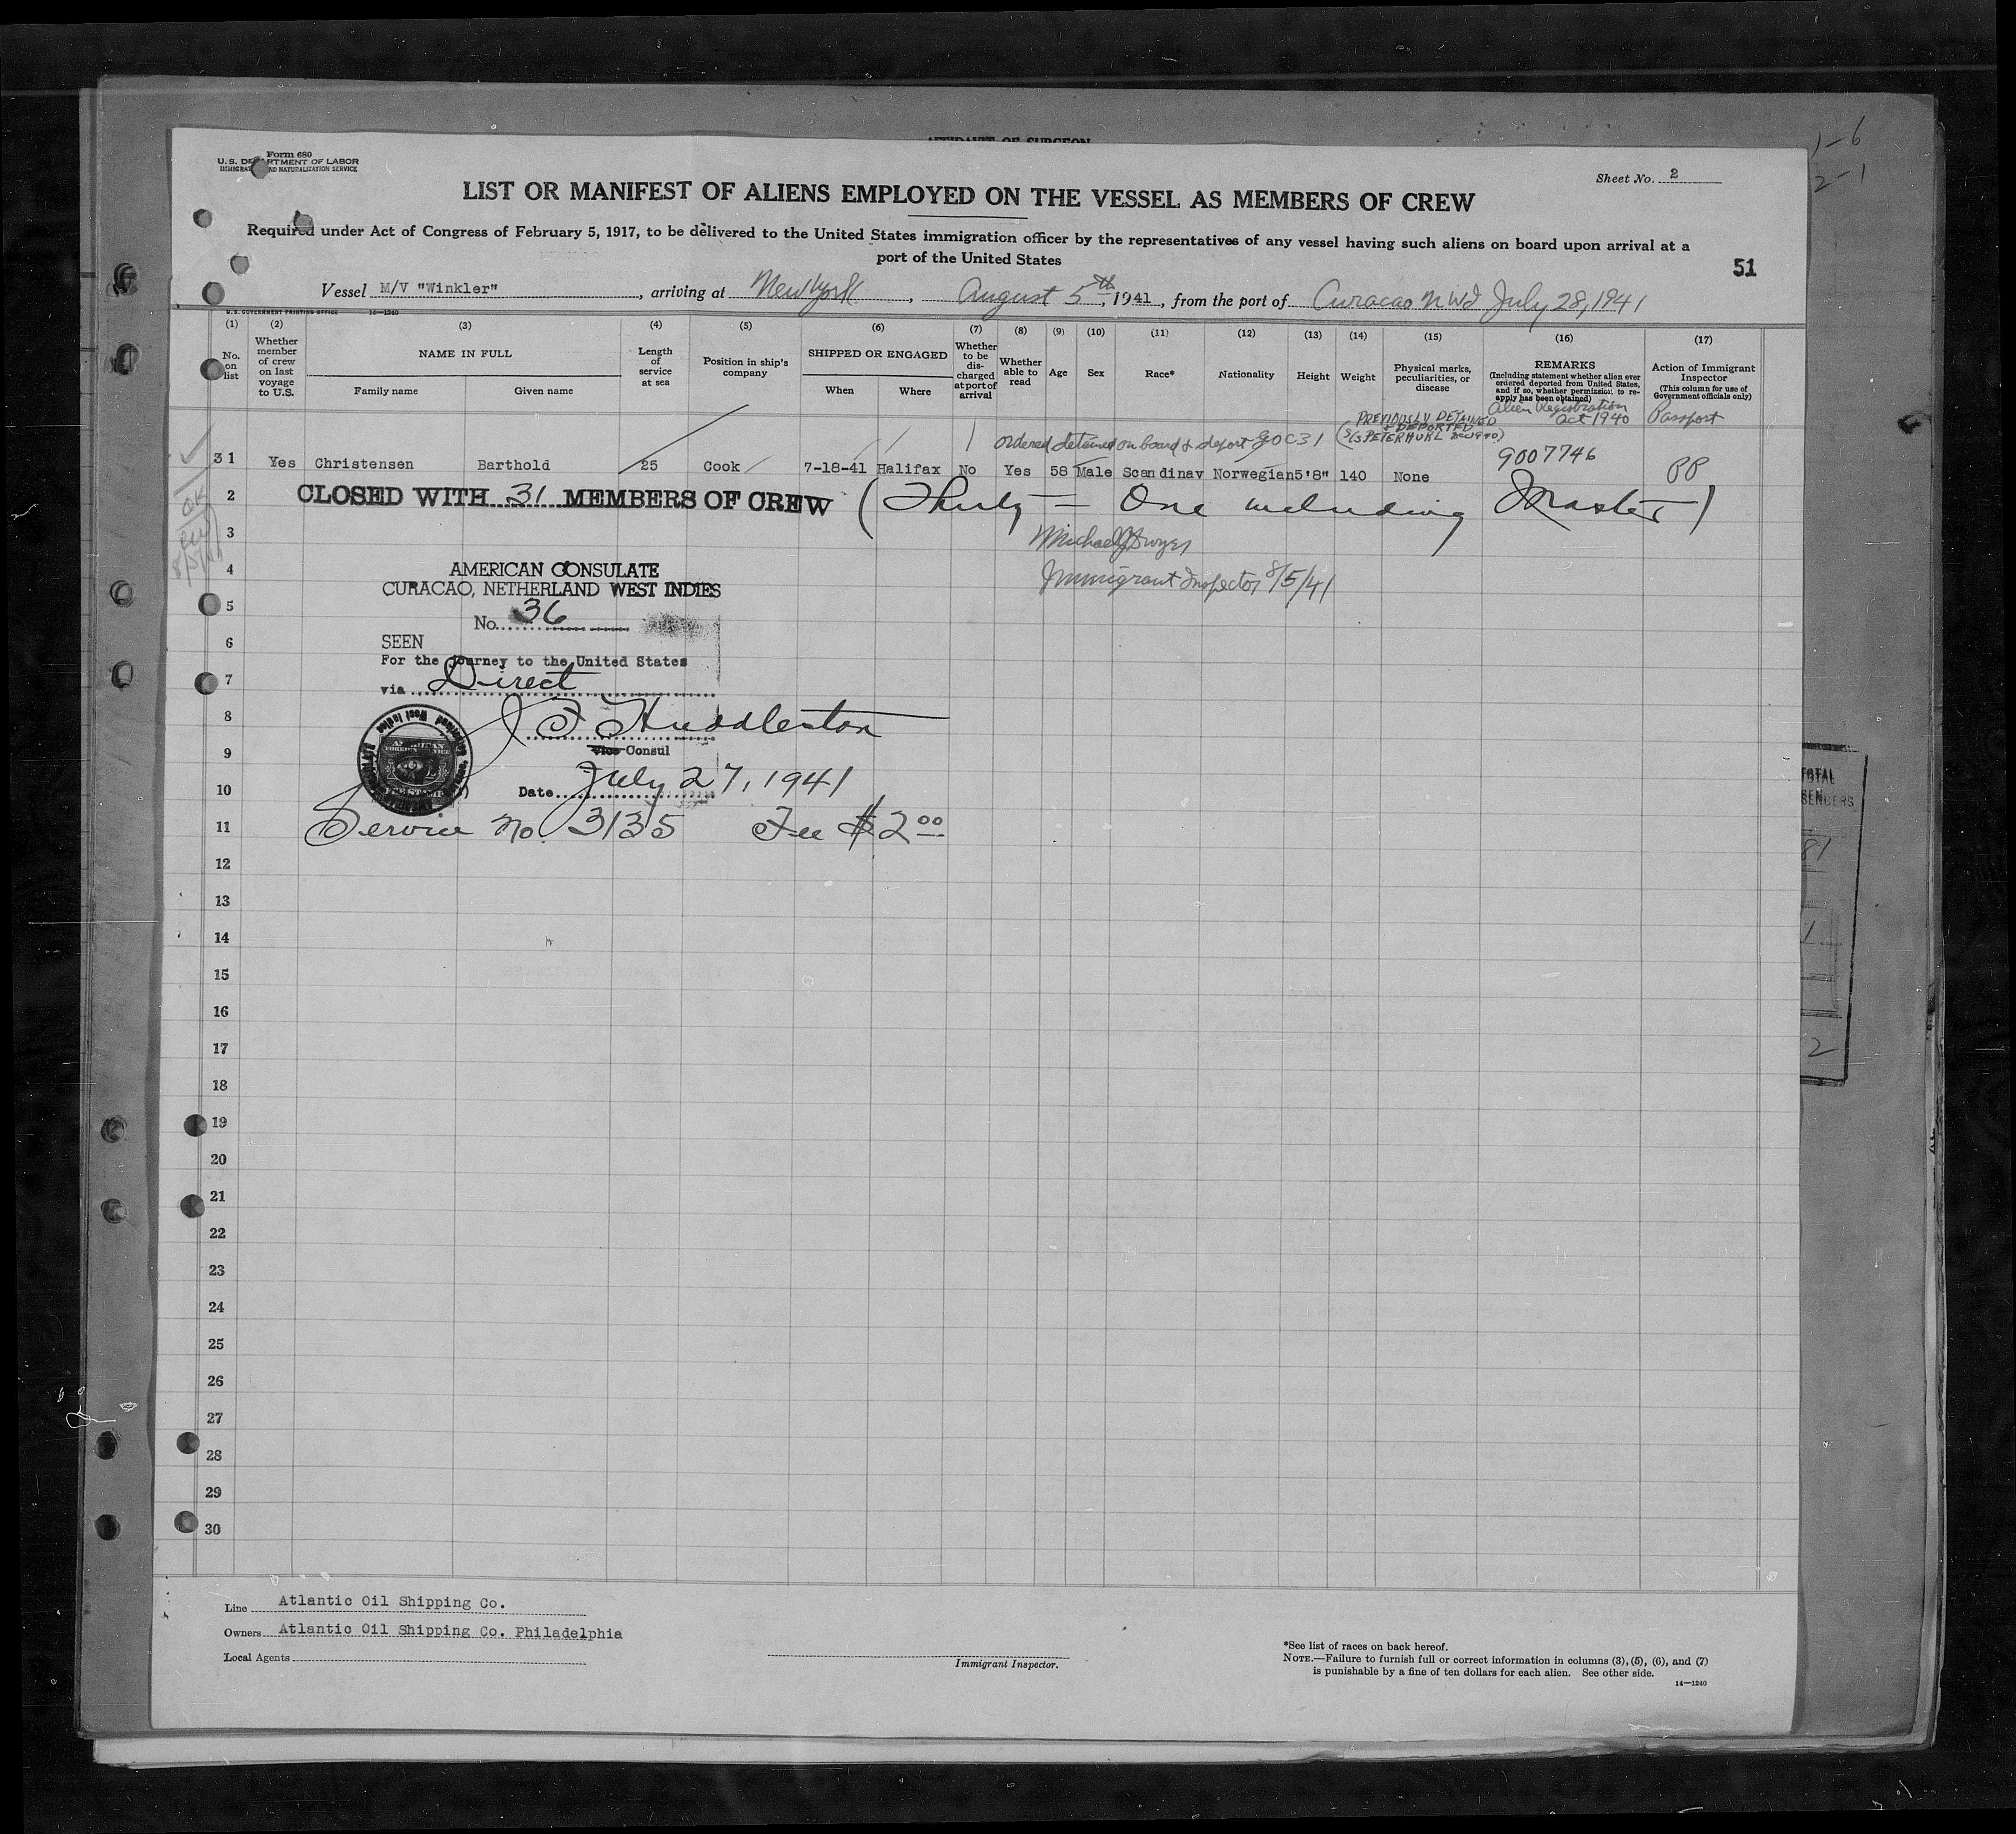 AFFIDAVIT OF SURGEON
1-6
2-1
Form 680
U. S. DEPARTMENT OF LABOR
IMMIGRATION AND NATURALIZATION SERVICE
Sheet No. 2
LIST OR MANIFEST OF ALIENS EMPLOYED ON THE VESSEL AS MEMBERS OF CREW
Required under Act of Congress of February 5, 1917, to be delivered to the United States immigration officer by the representatives of any vessel having such aliens on board upon arrival at a
port of the United States
51
Vessel M/V "Winkler", arriving at New York, August 5th, 1941, from the port of Curacao N W I July 28, 1941
U. S. GOVERNMENT PRINTING OFFICE 14—1240
(1) No. on list
(2) Whether member of crew on last voyage to U.S.
(3) NAME IN FULL Family name Given name
(4) Length of service at sea
(5) Position in ship's company
(6) SHIPPED OR ENGAGED When Where
(7) Whether to be discharged at port of arrival
(8) Whether able to read
(9) Age
(10) Sex
(11) Race*
(12) Nationality
(13) Height
(14) Weight
(15) Physical marks, peculiarities, or disease
(16) REMARKS (Including statement whether alien ever ordered deported from United States, and if so, whether permission to reapply has been obtained)
(17) Action of Immigrant Inspector (This column for use of Government officials only)
Alien Registration Act 1940 Passport
PREVIOUSLY DETAINED & DEPORTED
ordered detained on board & deport
S/S PETER HURL
31 Yes Christensen Barthold 25 Cook 7-18-41 Halifax No Yes 58 Male Scandinav Norwegian 5'8" 140 None 9007746 PP
OK
8/5/41
2 CLOSED WITH 31 MEMBERS OF CREW (Thirty - One including Master)
3 Michael J Dwyer
4 AMERICAN CONSULATE Immigrant Inspector 8/5/41
CURACAO, NETHERLAND WEST INDIES
5
No. 36
6 SEEN
For the journey to the United States
7 via Direct
8 Huddleston
9 Vice Consul
10 Date July 27, 1941
11 Service No. 3135 Fee $2.00
12
13
14
15
16
17
18
19
20
21
22
23
24
25
26
27
28
29
30
TOTAL
81
1
2
Line Atlantic Oil Shipping Co.
Owners Atlantic Oil Shipping Co. Philadelphia
Local Agents
Immigrant Inspector.
*See list of races on back hereof.
NOTE.—Failure to furnish full or correct information in columns (3), (5), (6), and (7)
is punishable by a fine of ten dollars for each alien. See other side.
14—1240